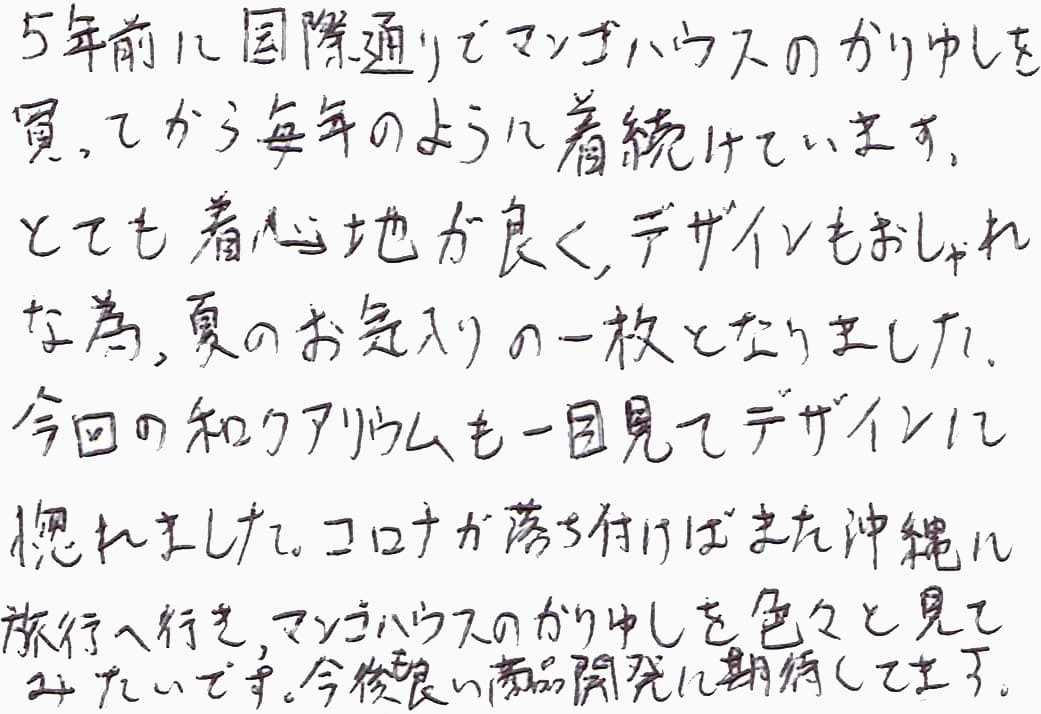 5年前に国際通りでマンゴハウスのかりゆしを
買ってから毎年のように着続けています。
とても着心地が良く、デザインもおしゃれ
な為、夏のお気入りの一枚となりました。
今回の和クアリウムも一目見てデザインに
惚れました。コロナが落ち付けばまた沖縄に
旅行へ行き、マンゴハウスのかりゆしを色々と見て
みたいです。今後も良い商品開発に期待してます。